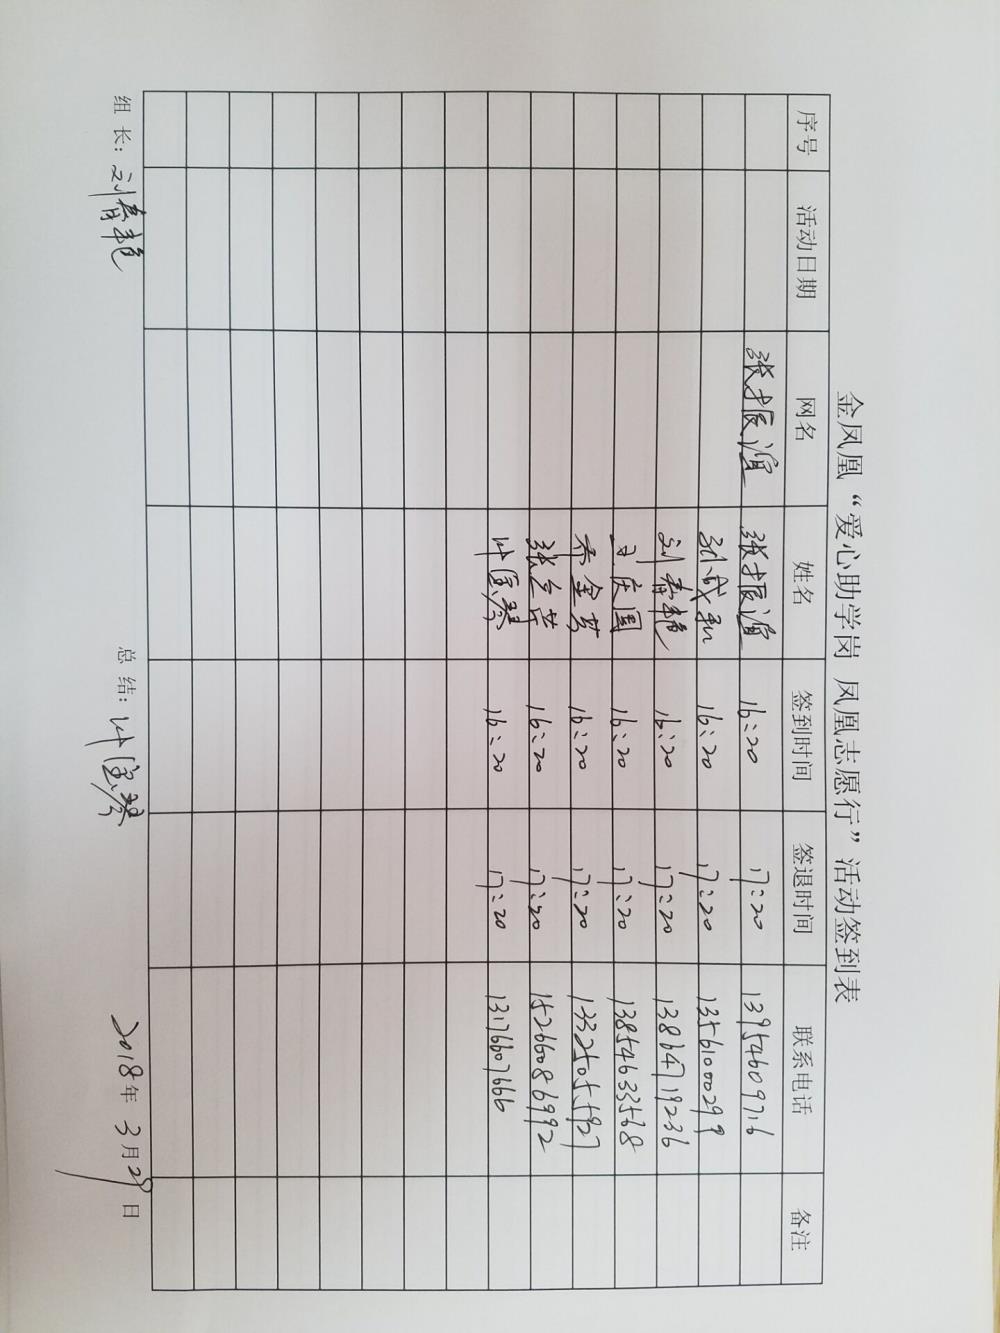 金凤凰“爱心助学岗 凤凰志愿行”活动签到表
序号 活动日期 网名 姓名 签到时间 签退时间 联系电话 备注
张振谊 张振谊 16:20 17:20 13954609716
孙成和 16:20 17:20 13561000299
刘春艳 16:20 17:20 13864719236
王庆国 16:20 17:20 13854633568
乔金英 16:20 17:20 13325055927
张冬芹 16:20 17:20 15266086992
叶宝琴 16:20 17:20 13176607666
组 长: 刘春艳 总 结: 叶宝琴 2018年 3月29日